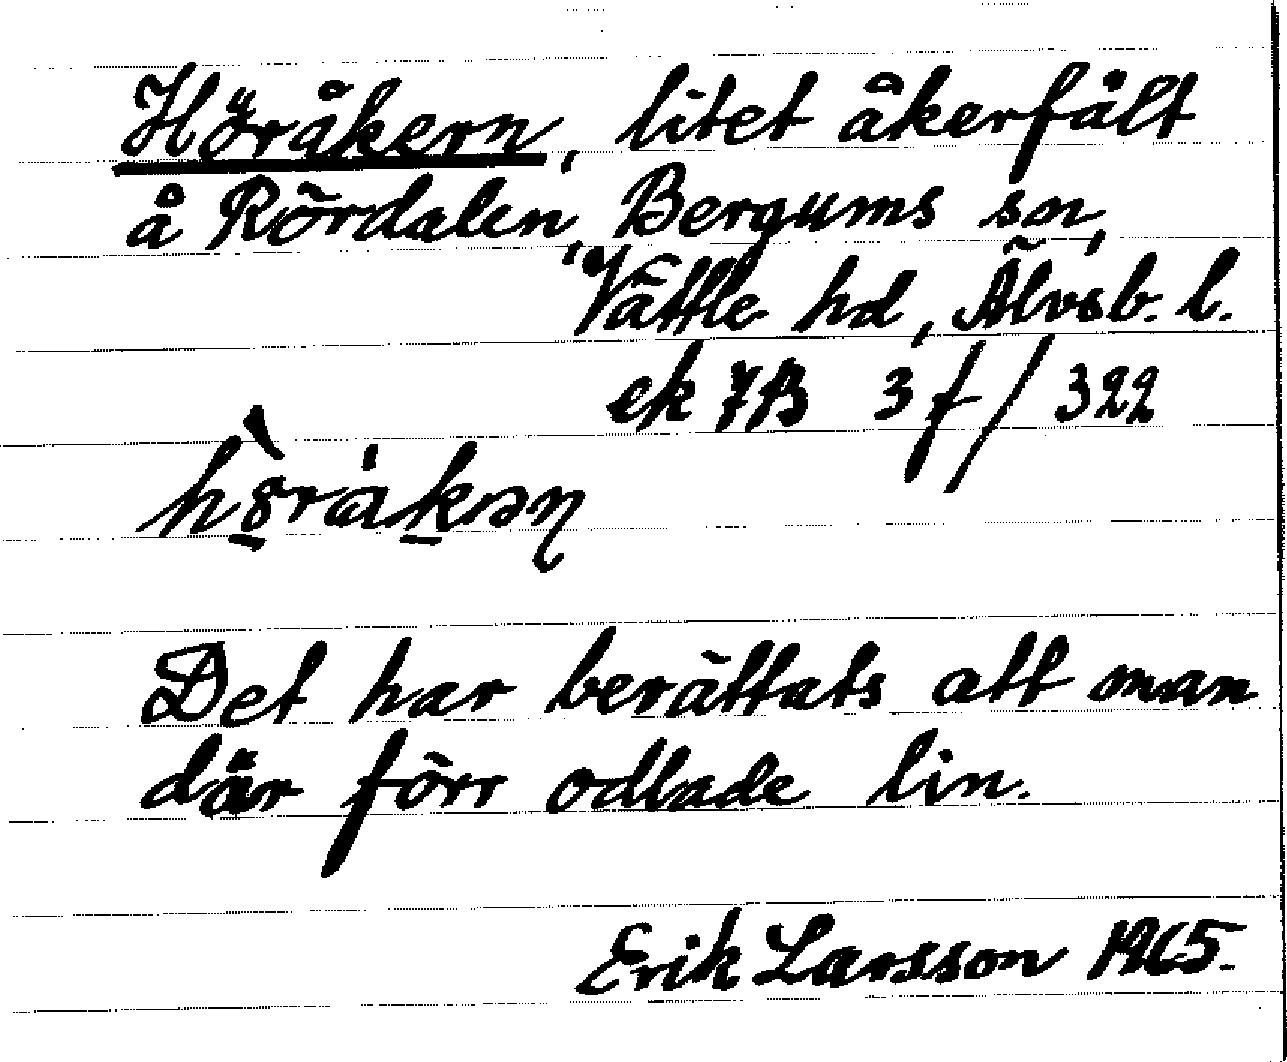 Höråkern, litet åkerfält
å Rördalen, Bergums sn,
Vättle hd, Älvsb. l.
ek 7B 3f/322
Det har berättats att man
där förr odlade lin.
Erik Larsson 1965.